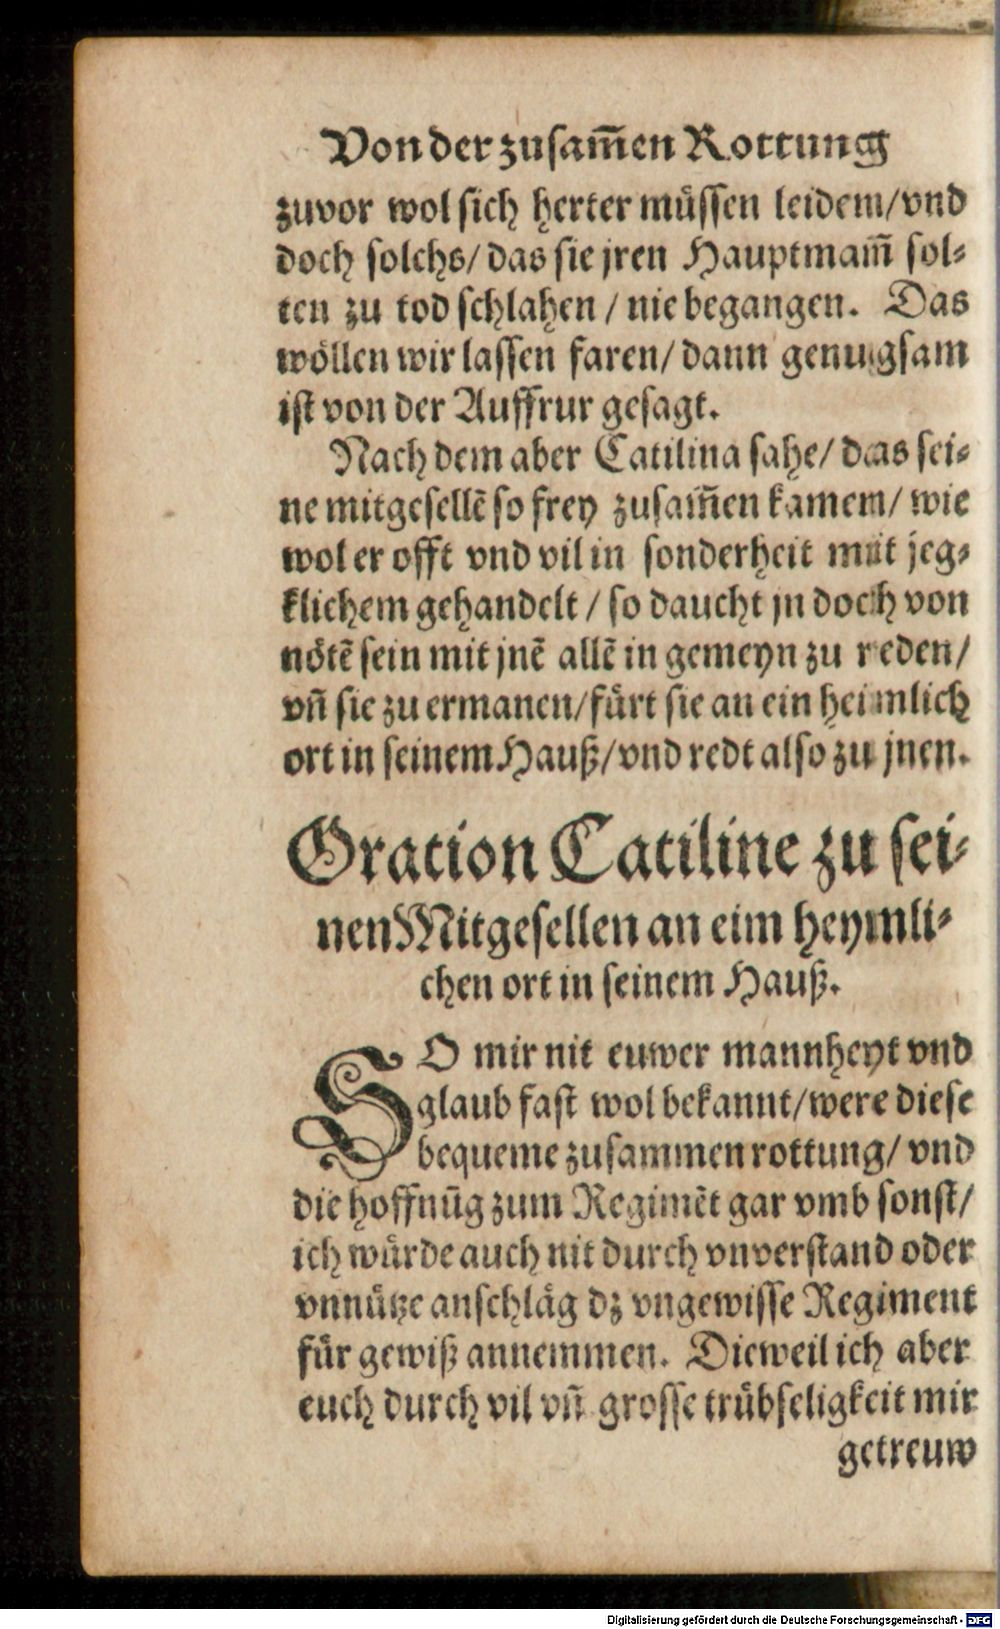 Von der zusam̃en Rottung
zuvor wol sich herter müssen leiden/vnd
doch solchs/ das sie jren Hauptmañ sol⸗
ten zu tod schlahen / nie begangen. Das
wöllen wir lassen faren/ dann genugsam
ist von der Auffrur gesagt.
Nach dem aber Catilina sahe/ das sei⸗
ne mitgesellẽ so frey zusam̃en kamen/ wie
wol er offt vnd vil in sonderheit mit jeg⸗
klichem gehandelt / so daucht jn doch von
nötẽ sein mit jnẽ allẽ in gemeyn zu reden/
vñ sie zu ermanen/fürt sie an ein heimlich
ort in seinem Hauß/vnd redt also zu jnen.
Oration Catiline zu sei⸗
nen Mitgesellen an eim heymli⸗
chen ort in seinem Hauß.
SO mir nit euwer mannheyt vnd
glaub fast wol bekannt/were diese
bequeme zusammenrottung/ vnd
die hoffnũg zum Regimẽt gar vmb sonst/
ich würde auch nit durch vnverstand oder
vnnütze anschläg dz vngewisse Regiment
für gewiß annemmen. Dieweil ich aber
euch durch vil vñ grosse trübseligkeit mir
getreuw
Digitalisierung gefördert durch die Deutsche Forschungsgemeinschaft - DFG